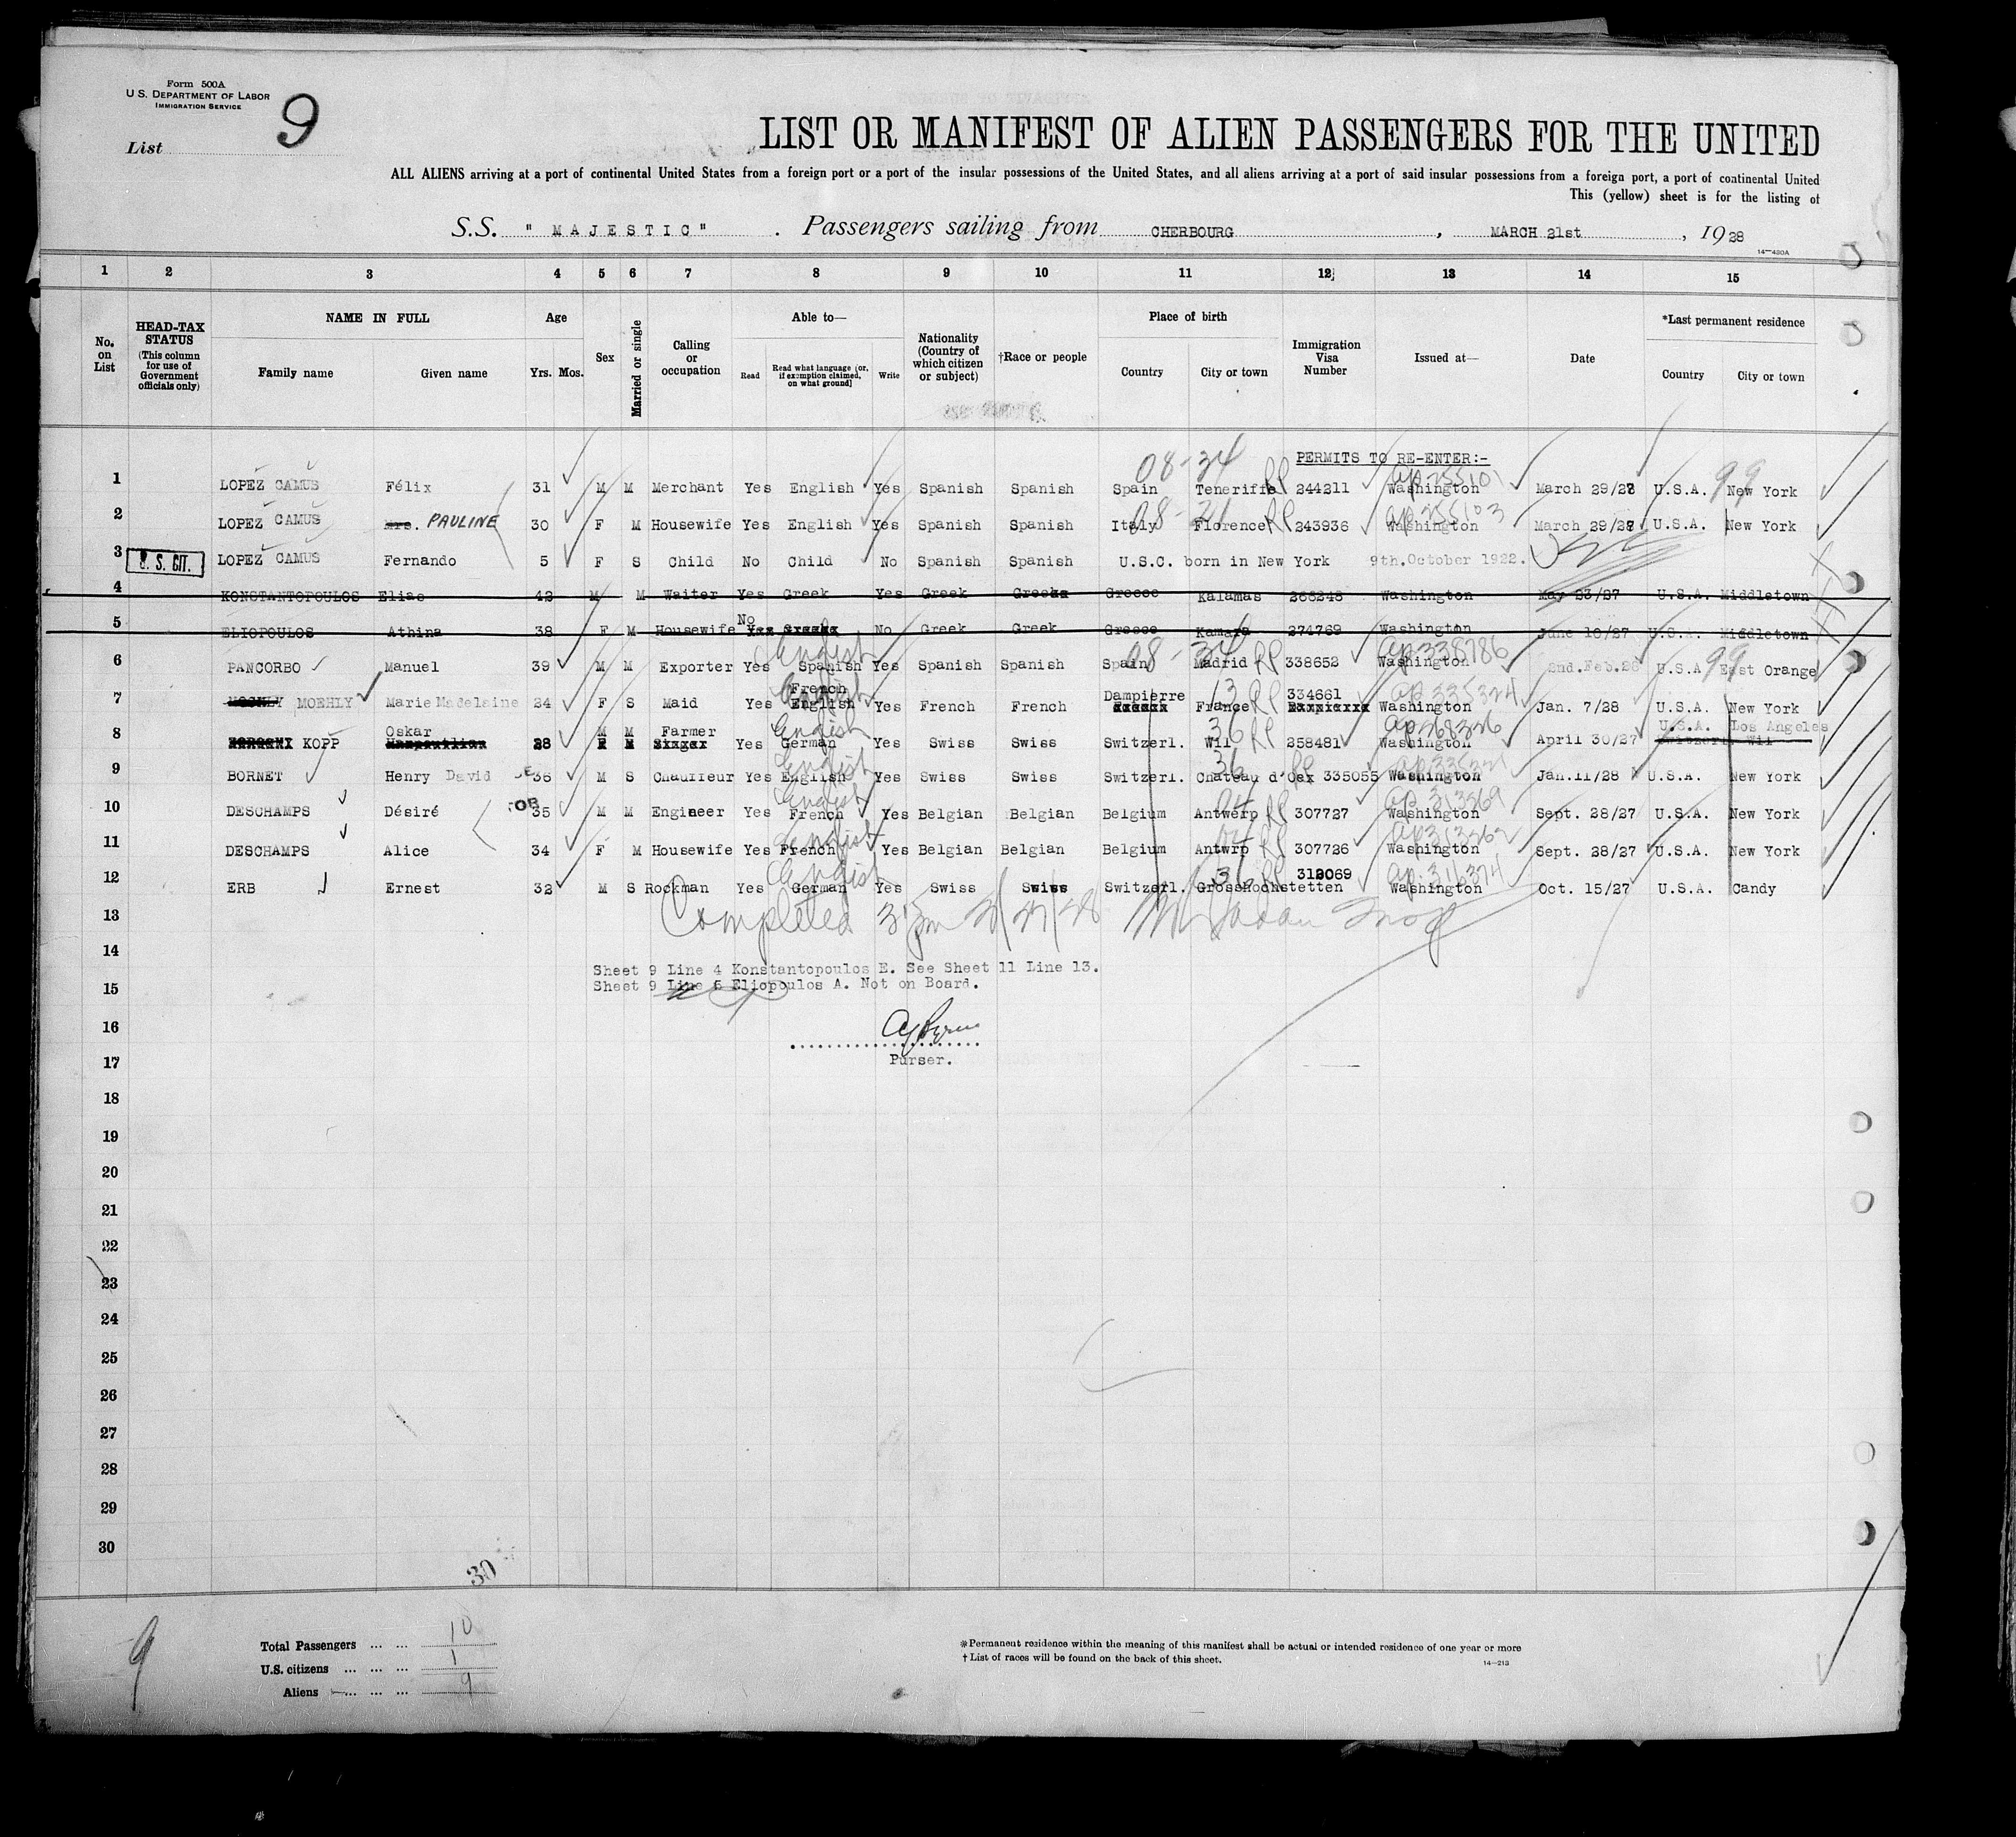 Form 500A
U.S. DEPARTMENT OF LABOR
IMMIGRATION SERVICE
List 9
LIST OR MANIFEST OF ALIEN PASSENGERS FOR THE UNITED
ALL ALIENS arriving at a port of continental United States from a foreign port or a port of the insular possessions of the United States, and all aliens arriving at a port of said insular possessions from a foreign port, a port of continental United
This (yellow) sheet is for the listing of
S.S. " MAJESTIC " . Passengers sailing from CHERBOURG , MARCH 21st , 1928
14—430A
1 2 3 4 5 6 7 8 9 10 11 12 13 14 15
No. on List
HEAD-TAX STATUS (This column for use of Government officials only)
NAME IN FULL
Family name Given name
Age
Yrs. Mos.
Sex
Married or single
Calling or occupation
Able to—
Read Read what language [or, if exemption claimed, on what ground] Write
Nationality (Country of which citizen or subject)
†Race or people
Place of birth
Country City or town
Immigration Visa Number
Issued at—
Date
*Last permanent residence
Country City or town
PERMITS TO RE-ENTER:-
08-34 ap 255101 99
1 LOPEZ CAMUS Félix 31 M M Merchant Yes English Yes Spanish Spanish Spain Teneriffe RP 244211 Washington March 29/28 U.S.A. New York
08-34 ap 255103
2 LOPEZ CAMUS Mrs. PAULINE 30 F M Housewife Yes English Yes Spanish Spanish Italy Florence RP 243936 Washington March 29/28 U.S.A. New York
3 U. S. CIT. LOPEZ CAMUS Fernando 5 F S Child No Child No Spanish Spanish U.S.C. born in New York 9th.October 1922.
4 KONSTANTOPOULOS Elias 42 M M Waiter Yes Greek Yes Greek Greek Greece Kalamas 268248 Washington May 23/27 U.S.A. Middletown
5 ELIOPOULOS Athina 38 F M Housewife No No Greek Greek Greece Kamara 274769 Washington June 10/27 U.S.A. Middletown
English 08-34 ap 338786 99
6 PANCORBO Manuel 39 M M Exporter Yes Spanish Yes Spanish Spanish Spain Madrid RP 338652 Washington 2nd.Feb.28 U.S.A East Orange
French English Dampierre 13 RP 334661 ap 335324
7 MOEHLY Marie Madelaine 24 F S Maid Yes English Yes French French France Washington Jan. 7/28 U.S.A. New York
Oskar M M Farmer English 36 RP ap 268326 U.S.A. Los Angeles
8 KOPP 28 Yes German Yes Swiss Swiss Switzerl. Wil 258481 Washington April 30/27 Switzerl. Wil
English 36 RP
9 BORNET Henry David 36 M S Chauffeur Yes English Yes Swiss Swiss Switzerl. Chateau d'Oex 335055 Washington Jan.11/28 U.S.A. New York
English 04 ap 313269
10 DESCHAMPS Désiré 35 M M Engineer Yes French Yes Belgian Belgian Belgium Antwerp RP 307727 Washington Sept. 28/27 U.S.A. New York
English 04
11 DESCHAMPS Alice 34 F M Housewife Yes French Yes Belgian Belgian Belgium Antwrp RP 307726 Washington Sept. 28/27 U.S.A. New York
English 36 RP 312069 ap. 316374
12 ERB Ernest 32 M S Rockman Yes German Yes Swiss Swiss Switzerl. Grosshochstetten Washington Oct. 15/27 U.S.A. Candy
13 Completed
14
Sheet 9 Line 4 Konstantopoulos E. See Sheet 11 Line 13.
15 Sheet 9 Line 5 Eliopoulos A. Not on Board.
16
17 Purser.
18
19
20
21
22
23
24
25
26
27
28
29
30
30
9
Total Passengers ... ... 10
U.S. citizens ... ... ... 1
Aliens ... ... ... 9
*Permanent residence within the meaning of this manifest shall be actual or intended residence of one year or more
†List of races will be found on the back of this sheet.
14—213